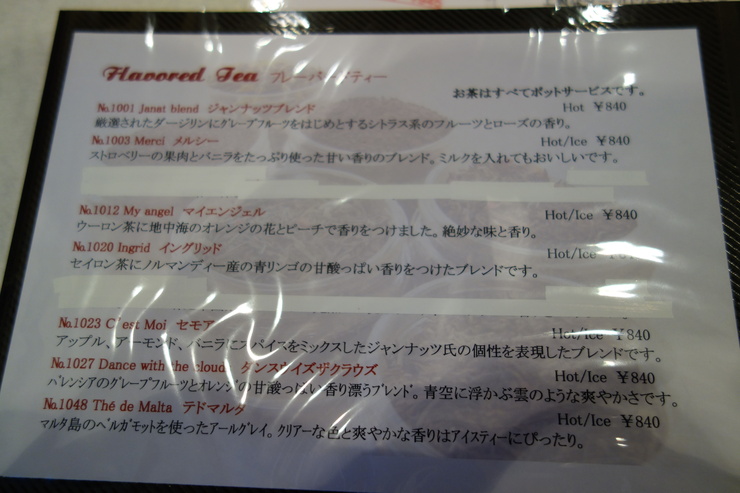 Flavored Tea フレーバードティー
お茶はすべてポットサービスです。
№1001 Janat blend ジャンナッツブレンド Hot ￥840
厳選されたダージリンにグレープフルーツをはじめとするシトラス系のフルーツとローズの香り。
№1003 Merci メルシー Hot/Ice ￥840
ストロベリーの果肉とバニラをたっぷり使った甘い香りのブレンド。ミルクを入れてもおいしいです。
№1012 My angel マイエンジェル Hot/Ice ￥840
ウーロン茶に地中海のオレンジの花とピーチで香りをつけました。絶妙な味と香り。
№1020 Ingrid イングリッド Hot/Ice
セイロン茶にノルマンディー産の青リンゴの甘酸っぱい香りをつけたブレンドです。
№1023 C'est Moi セモア Hot/Ice ￥840
アップル、アーモンド、バニラにスパイスをミックスしたジャンナッツ氏の個性を表現したブレンドです。
№1027 Dance with the cloud ダンスウイズザクラウズ Hot/Ice ￥840
バレンシアのグレープフルーツとオレンジの甘酸っぱい香り漂うブレンド。青空に浮かぶ雲のような爽やかさです。
№1048 Thé de Malta テドマルタ Hot/Ice ￥840
マルタ島のベルガモットを使ったアールグレイ。クリアーな色と爽やかな香りはアイスティーにぴったり。